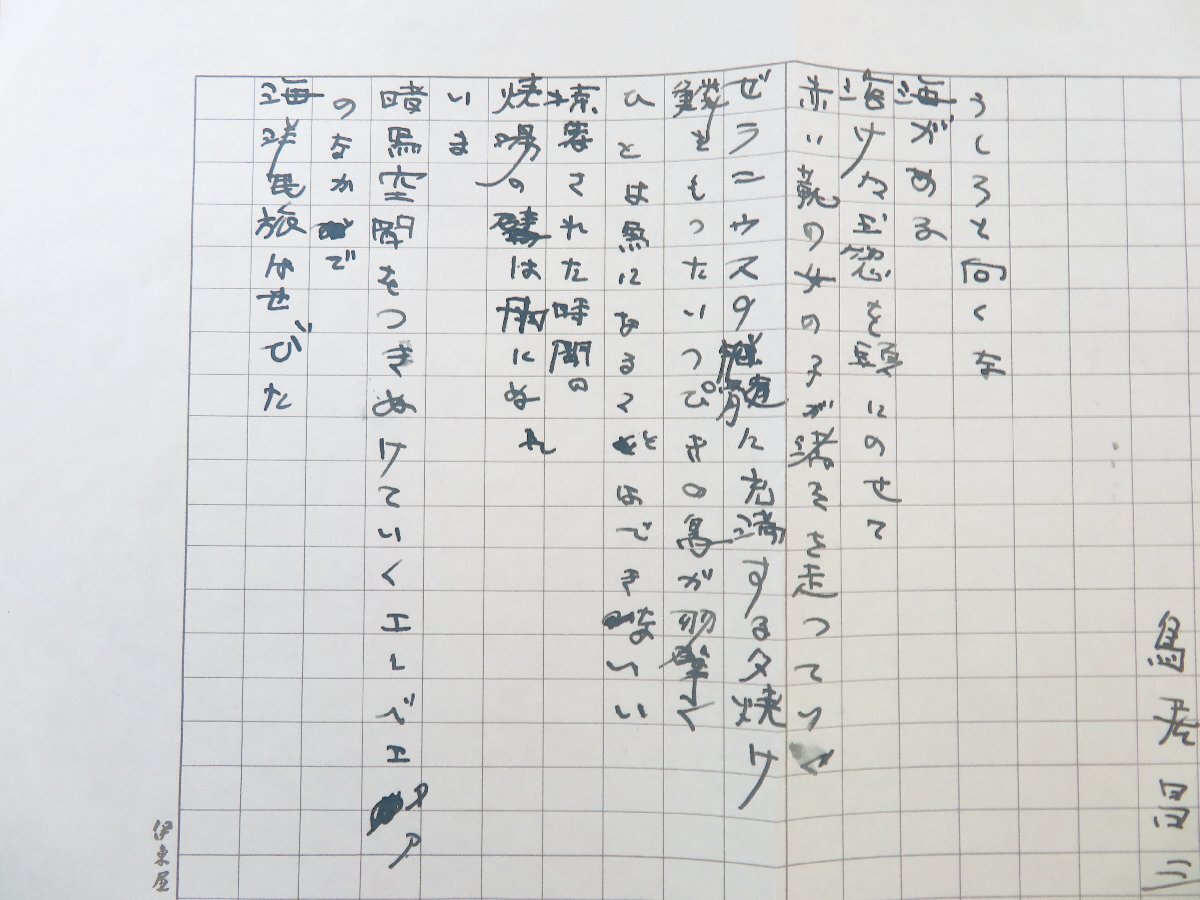 鳥居昌三
うしろを向くな
海がある
玉葱を頭にのせて
赤い靴の女の子が を走っていく
ゼラニウスの に充満する夕焼け
鱗をもったいっぴきの鳥が羽撃く
ひとは鳥になることはできない
された時間の
焼場の は雨にぬれ
いま
暗黒空間をつきぬけていくエレベエタア
のなかで
海
伊東屋